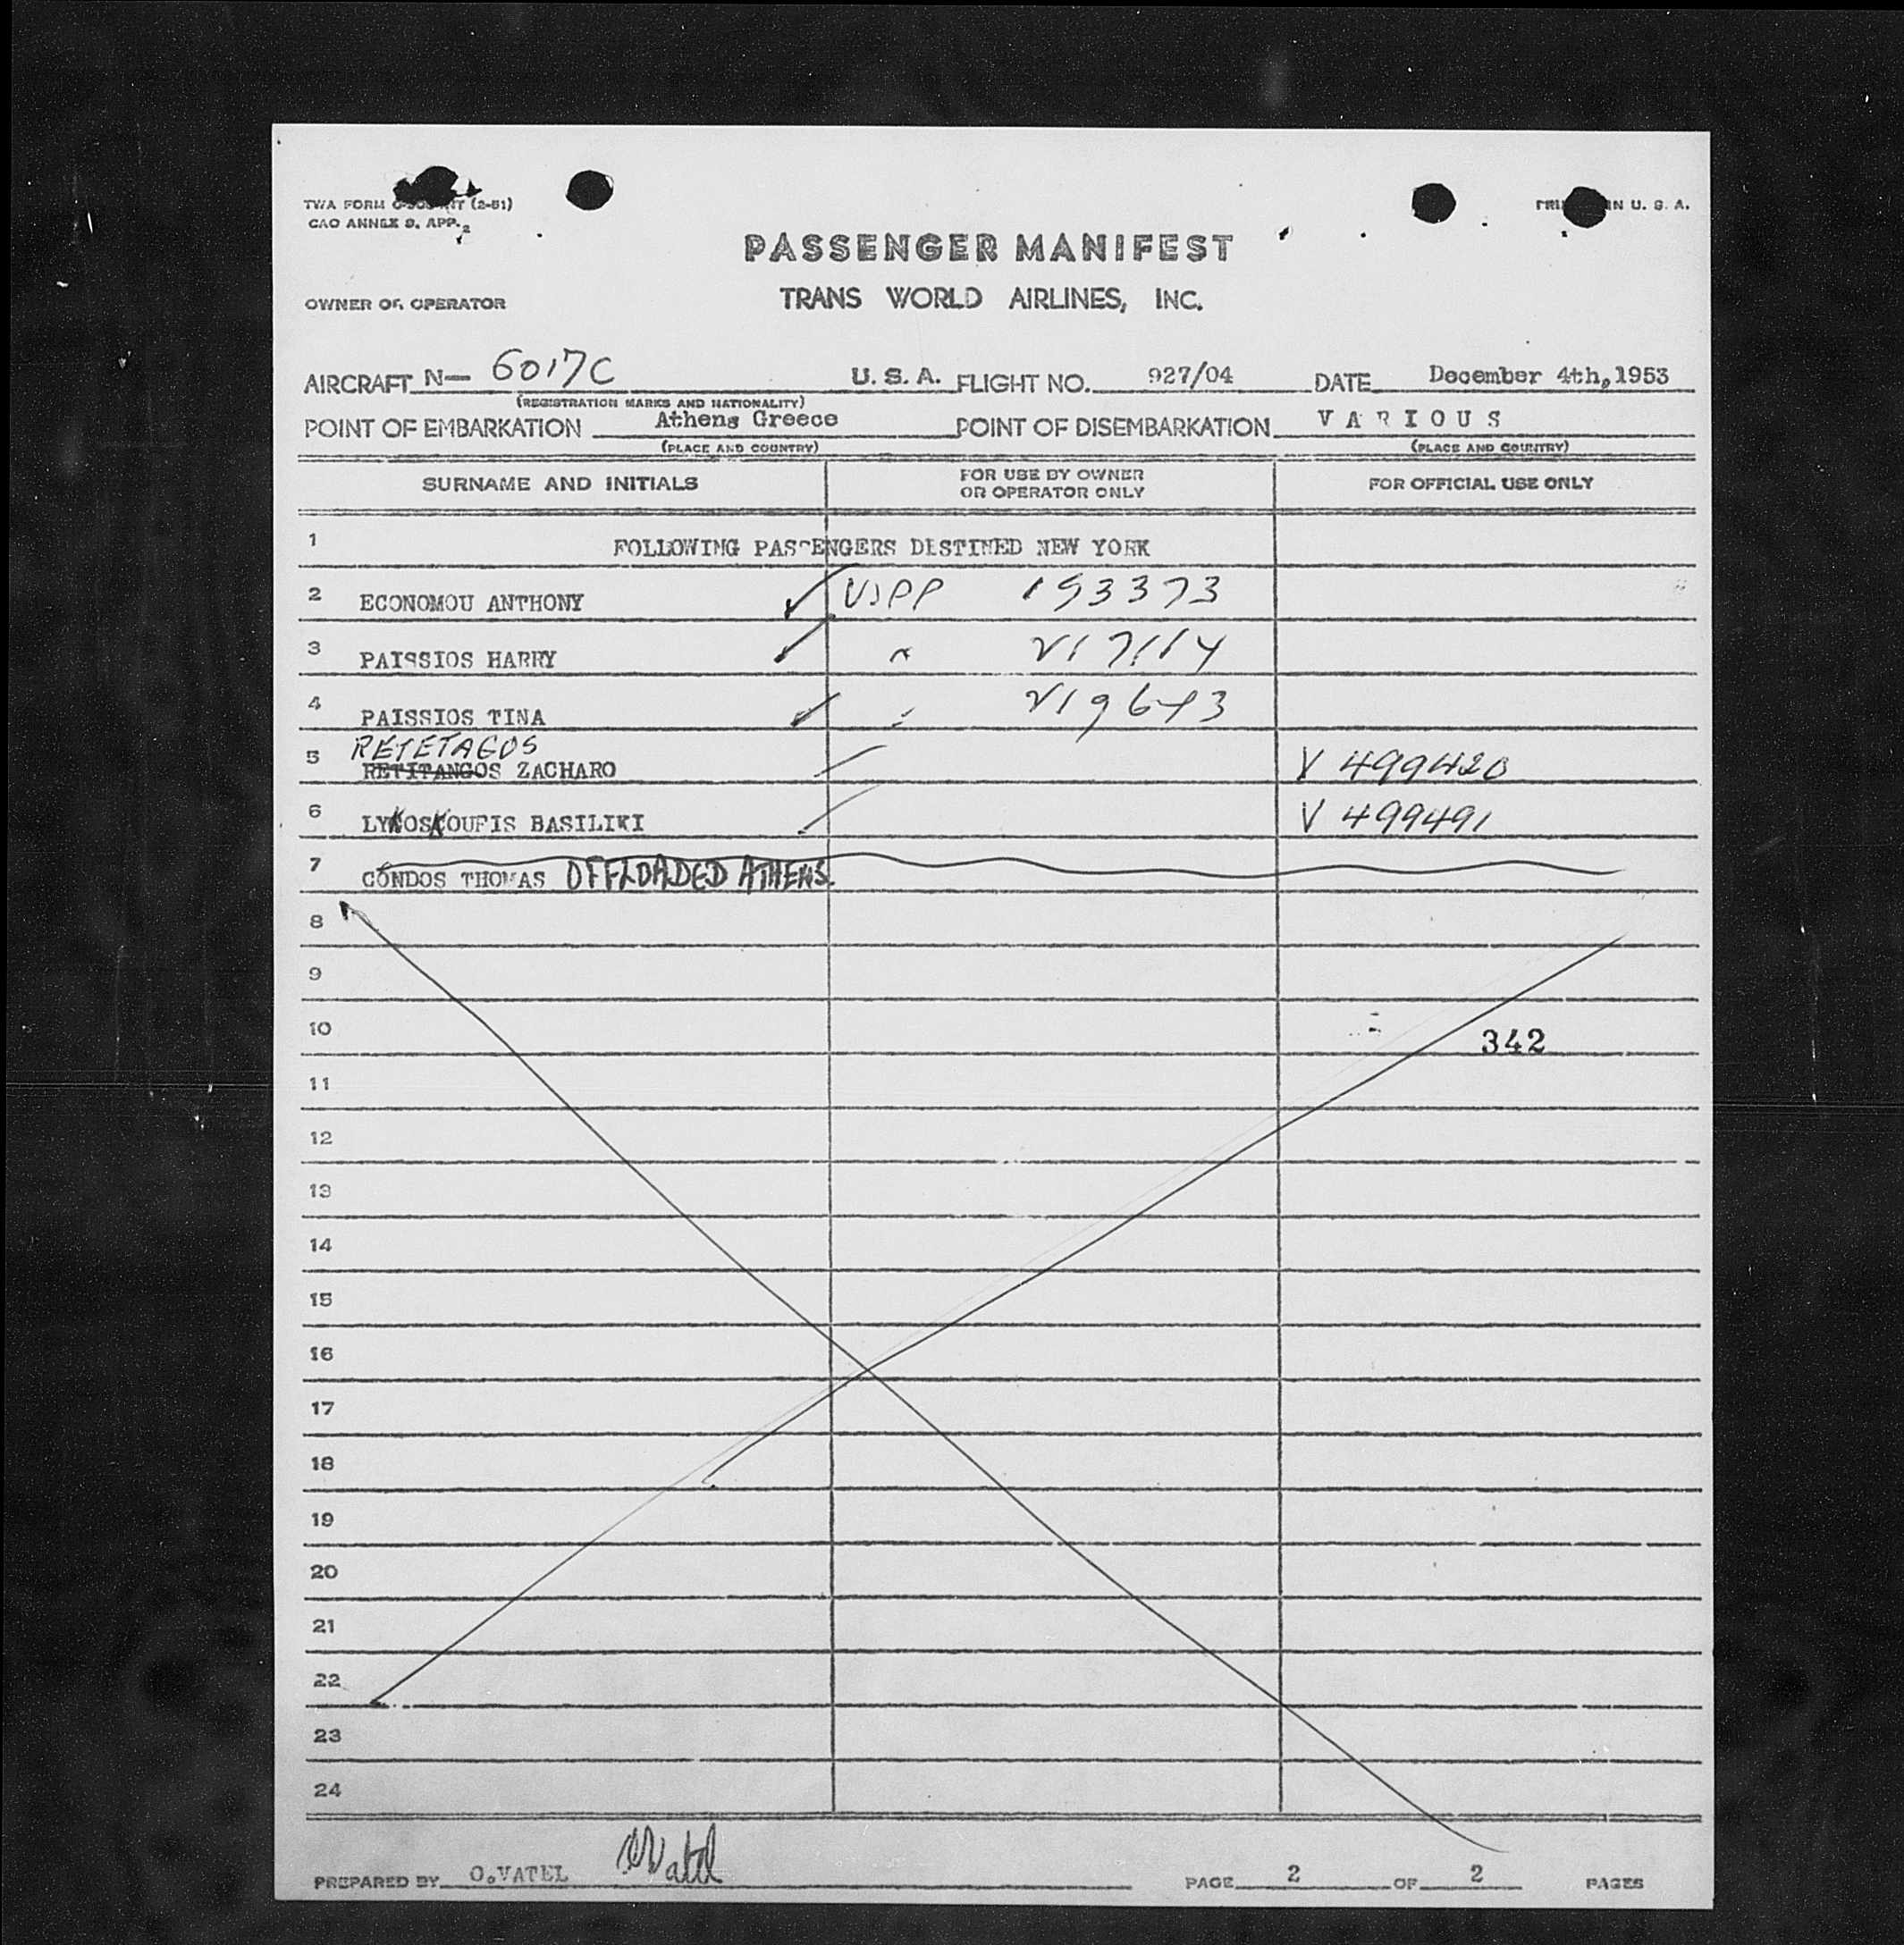 TWA FORM (2-51)
CAO ANNEX 9, APP. 2
IN U. S. A.
PASSENGER MANIFEST
OWNER OR OPERATOR TRANS WORLD AIRLINES, INC.
AIRCRAFT N— 6017C U. S. A. FLIGHT NO. 927/04 DATE December 4th, 1953
(REGISTRATION MARKS AND NATIONALITY)
POINT OF EMBARKATION Athens Greece POINT OF DISEMBARKATION V A R I O U S
(PLACE AND COUNTRY) (PLACE AND COUNTRY)
SURNAME AND INITIALS FOR USE BY OWNER OR OPERATOR ONLY FOR OFFICIAL USE ONLY
1 FOLLOWING PASSENGERS DESTINED NEW YORK
2 ECONOMOU ANTHONY USPP 153373
3 PAISSIOS HARRY " V17114
4 PAISSIOS TINA " V19643
RETETAGOS
5 RETITANGOS ZACHARO V 499420
6 LYKOSKOUFIS BASILIKI V 499491
7 CONDOS THOMAS OFFLOADED ATHENS.
8
9
10 342
11
12
13
14
15
16
17
18
19
20
21
22
23
24
PREPARED BY O.VATEL OVatel PAGE 2 OF 2 PAGES